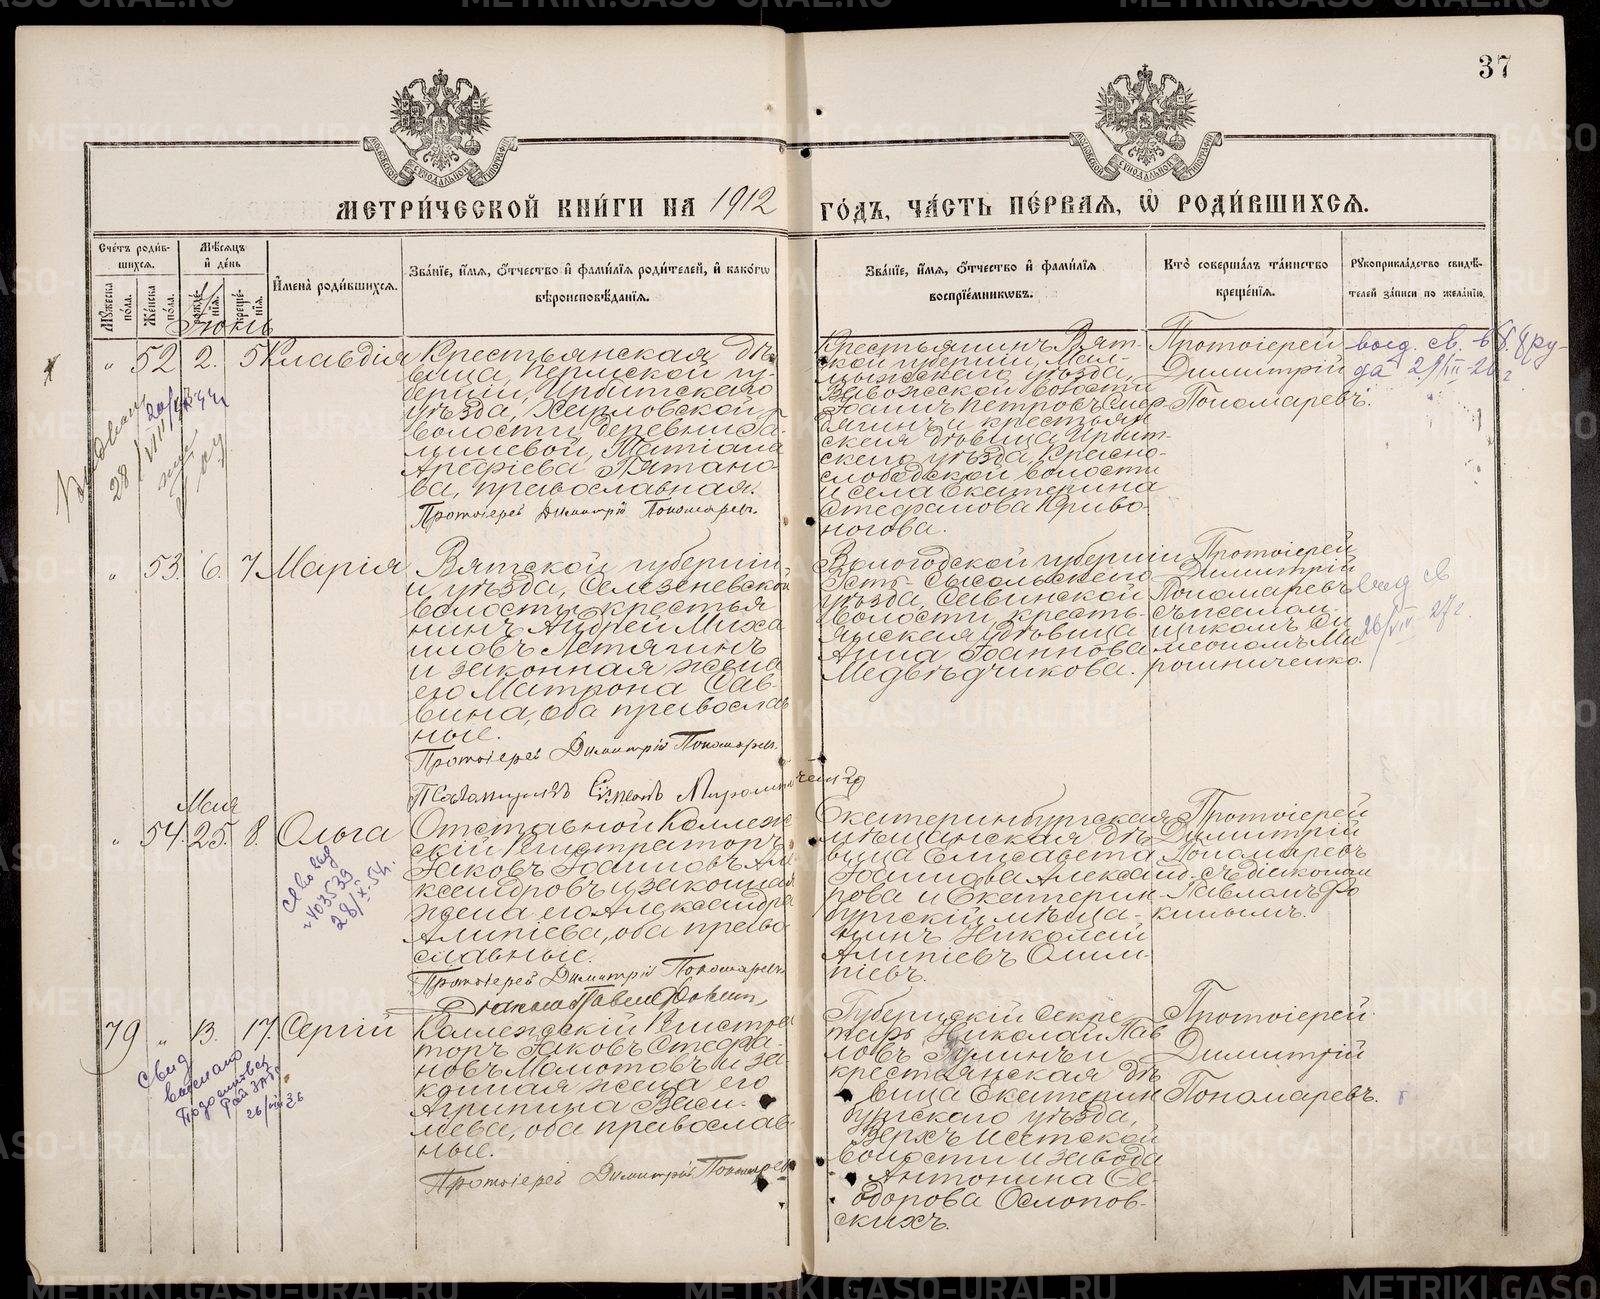 37
МЕТРИ́ЧЕСКОЙ КНИ́ГИ НА 1912 ГО́ДЪ, ЧА́СТЬ ПЕ́РВАЯ, Ѡ РОДИ́ВШИХСЯ.
Сче́тъ роди́вшихся.
Му́жеска по́ла.
Же́нска по́ла.
Мѣ́сяцъ и де́нь
рожде́нія.
креще́нія.
Имена̀ роди́вшихся.
Зва́ніе, и́мя, о́тчество и фами́лія роди́телей, и како́гѡ
вѣроисповѣ́данія.
Зва́ніе, и́мя, о́тчество и фами́лія
воспріе́мникѡвъ.
Кто̀ соверша́лъ та́инство
креще́нія.
Рукоприкла́дство свидѣ́-
телей за́писи по жела́нію.
Іюнь
„ 52 2. 5 Клавдія
Крестьянская дѣ-
вица, Пермской гу-
берніи, Ирбитскаго
уѣзда, Харловской
волости, деревни Га-
Татіана
Арефіева
ва, православная.
Протоіерей Димитрій Пономаревъ.
Крестьянинъ Вят-
ской губерніи, Мал-
мыжскаго уѣзда,
волости
Іоаннъ Петровъ Смер-
дягинъ и крестьян-
ская дѣвица Ирбит-
скаго уѣзда, Красно-
слободской волости
и села Екатерина
Стефанова Криво-
ногова.
Протоіерей
Димитрій
Пономаревъ.
„ 53. 6. 7 Марія
Вятской губерніи
и уѣзда, Селезеневской
волости, крестья-
нинъ Андрей Миха-
иловъ Летягинъ
и законная жена
его Матрона Сав-
вина, оба православ-
ные.
Протоіерей Димитрій Пономаревъ.
Псаломщикъ Симеонъ Мирошниченко
Вологодской губерніи
Усть-Сысольскаго
уѣзда, Савинской
волости, кресть-
янская дѣвица
Анна Іоаннова
Медвѣдчикова.
Протоіерей
Димитрій
Пономаревъ
съ псалом-
щикомъ Си-
меономъ Ми-
рошниченко.
Мая
„ 54. 25. 8. Ольга
Отставной Коллеж-
скій Регистраторъ
Іаковъ Іоанновъ Але-
ксандровъ и законная
жена его Александра
Алипіева, оба право-
славные.
Протоіерей Димитрій Пономаревъ
Екатеринбургская
мѣщанская дѣ-
вица Елисавета
Іоаннова Александ-
рова и Екатерин-
бургскій мѣща-
нинъ Николай
Алипіевъ
Протоіерей
Димитрій
Пономаревъ
съ діакономъ
Павломъ Фо-
79 „ 13. 17. Сергій
Коллежскій Регистра-
торъ Іаковъ Стефа-
новъ Мамотовъ и за-
конная жена его
Агрипина Васи-
льева, оба православ-
ные.
Протоіерей Димитрій Пономаревъ
Губернскій Секре-
тарь Николай Пав-
ловъ
крестьянская дѣ-
вица Екатерин-
бургскаго уѣзда,
Верхъ Исетской
волости и завода
Антонина Ѳе-
одорова Ослопов-
скихъ.
Протоіерей
Димитрій
Пономаревъ.
METRIKI.GASO-URAL.RU